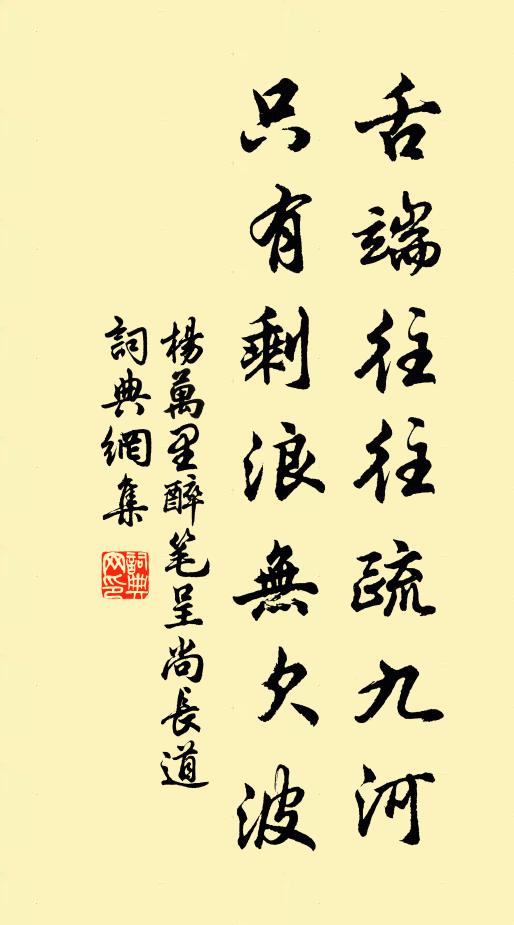 舌端往往疏九河
只有剩浪無欠波
楊萬里醉笔呈尚長道
詞典網集
詞典网印